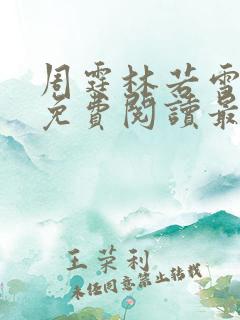 周霆林若雪
免費閱讀最
王荣利
未经同意禁止转载